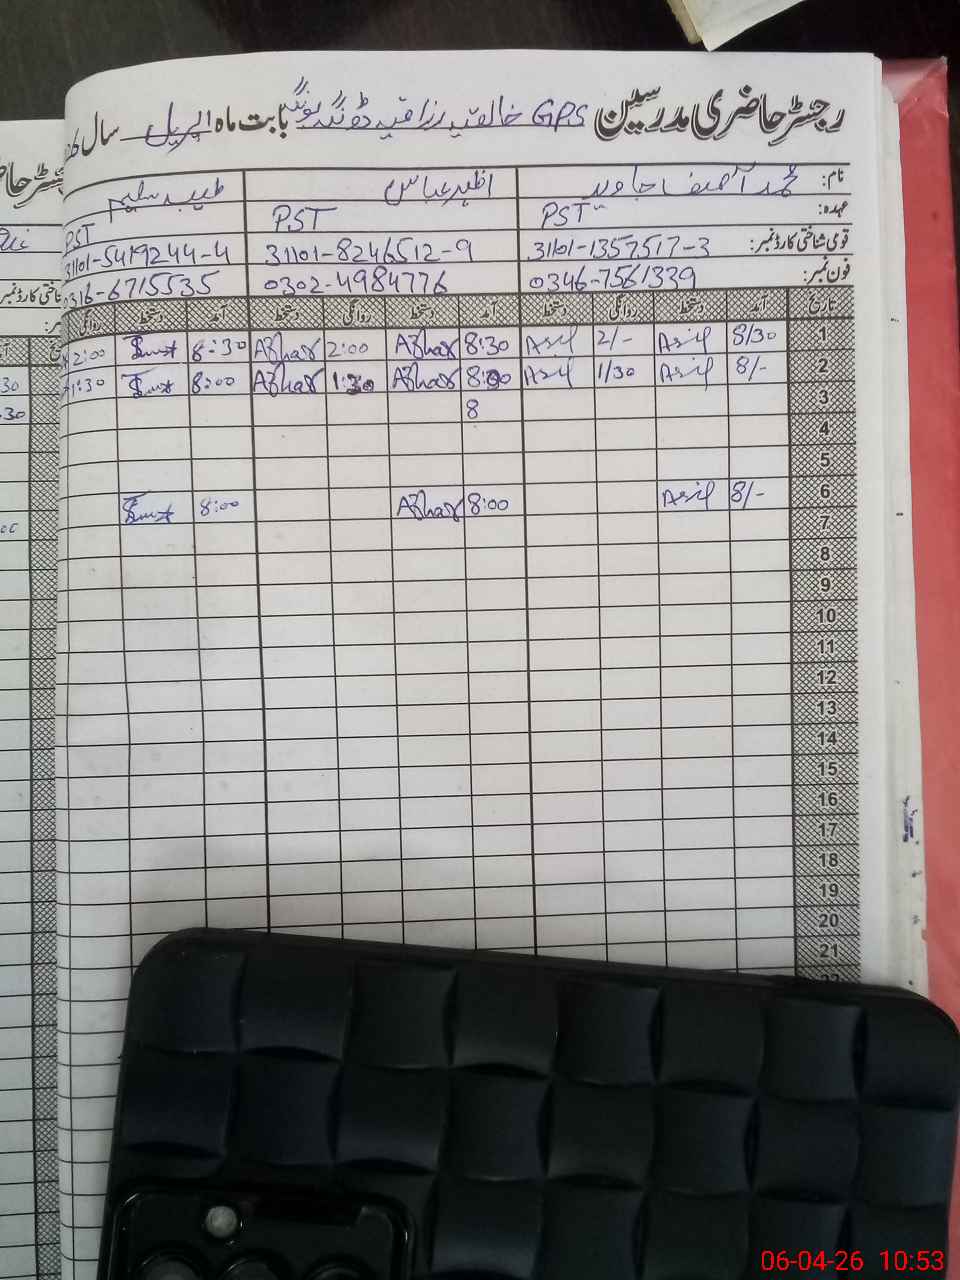 رجسٹر حاضری مدرسین GPS خالقیہ رزاقیہ ڈونگہ بونگہ بابت ماہ اپریل سال
نام: محمد آصف جاوید اظہر عباس طیب سلیم
عہدہ: PST PST PST
قومی شناختی کارڈ نمبر: 31101-1357517-3 31101-8246512-9 31101-5419244-4
فون نمبر: 0346-7561339 0302-4984776 0316-6715535
تاریخ آمد دستخط روانگی دستخط آمد دستخط روانگی دستخط آمد دستخط روانگی
1 8/30 Asif 2/- Asif 8:30 Azhar 2:00 Azhar 8:30 2:00
2 8/- Asif 1/30 Asif 8:00 Azhar 1:30 Azhar 8:00 1:30
3 8
4
5
6 8/- Asif 8:00 Azhar 8:00
7
8
9
10
11
12
13
14
15
16
17
18
19
20
21
06-04-26 10:53